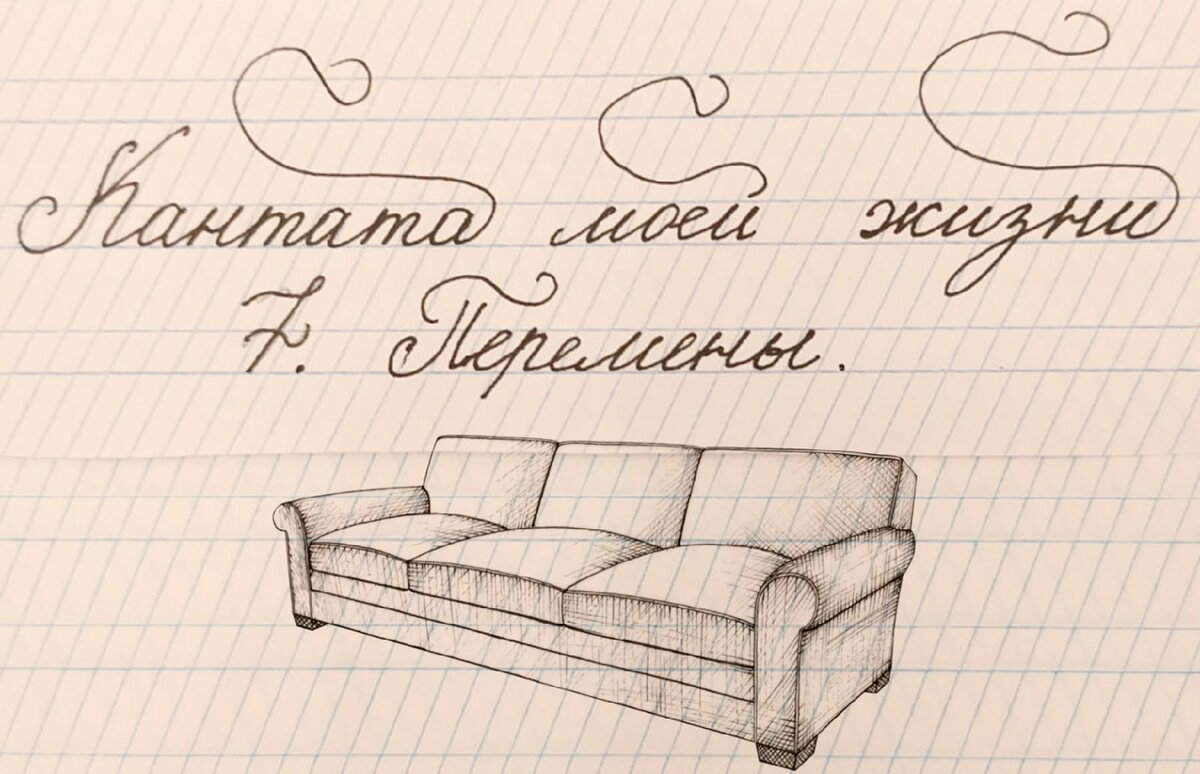 Кантата моей жизни
7. Перемены.